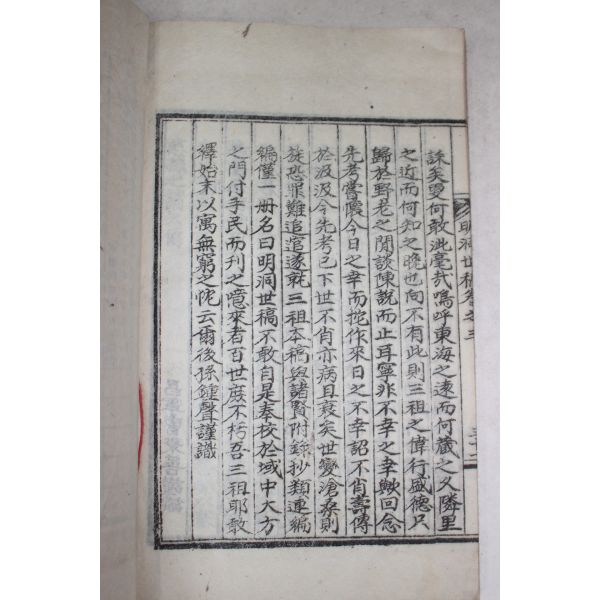 明洞世稿卷之三
誄矣更何敢泚毫哉嗚呼東海之遠而何藏之久隣里
之近而何知之晚也向不有此則三祖之偉行盛德只
歸於野老之閒談陳說而止耳寧非不幸之幸歟回念
先考嘗隱今日之幸而拕作來日之不幸詔不肖壽傳
於汲汲今先考已下世不肖亦病且衰矣世變滄桑則
旋恐罪難追逭遂就三祖本稿與諸賢附錄抄類連編
編僅一册名曰明洞世稿不敢自是奉校於域中大方
之門付手民而刊之噫來者百世庶不朽吾三祖耶敢
繹始末以寓無窮之忱云爾後孫鍾聲謹識